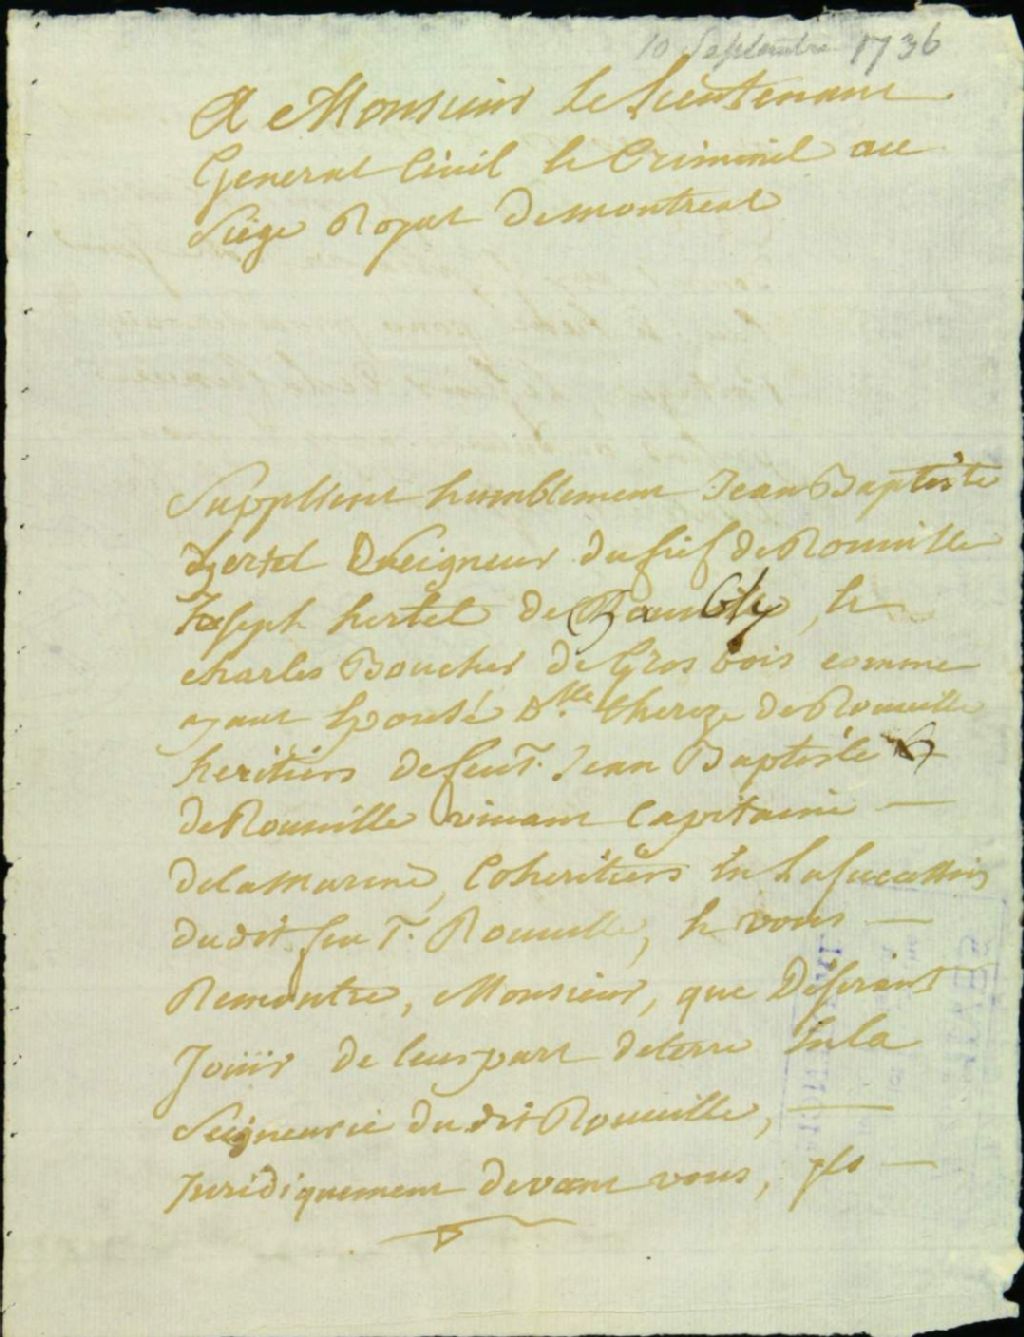 10 Septembre 1736
A Monsieur Le Lieutenant
General Civil Et Criminel au
Siège Royal De montreal
Supplient humblement Jean Baptiste
hertel Seigneur du fief de Rouville
Joseph hertel De, Et
charles Boucher De Gros bois comme
ayant Epousé Dlle Thereze de Rouville
heritiers defeu Sr. Jean Baptiste
de Rouville vivant Capitaine —
dela marine, Coheritiers En La sucession
dudit feu Sr. Rouville, Et vous —
Remontre, Monsieur, que Desirant
Jouiir de leur part de terre En la
Seigneurie du dit Rouville, —
Juridiquement devant vous, ils —